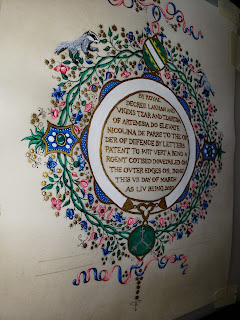 BY ROYAL
DECREE LAHLAN AND
VIGDIS TZAR AND TSARITSA
OF ARTEMISIA DO ELEVATE
NICOLINA DE PARIS TO THE OR
DER OF DEFENCE BY LETTERS
PATENT TO WIT VERT A BEND A
RGENT COTISED DOVETAILED ON
THE OUTER EDGES OR. DONE
THIS VII DAY OF MARCH
AS LIV BEING 2020